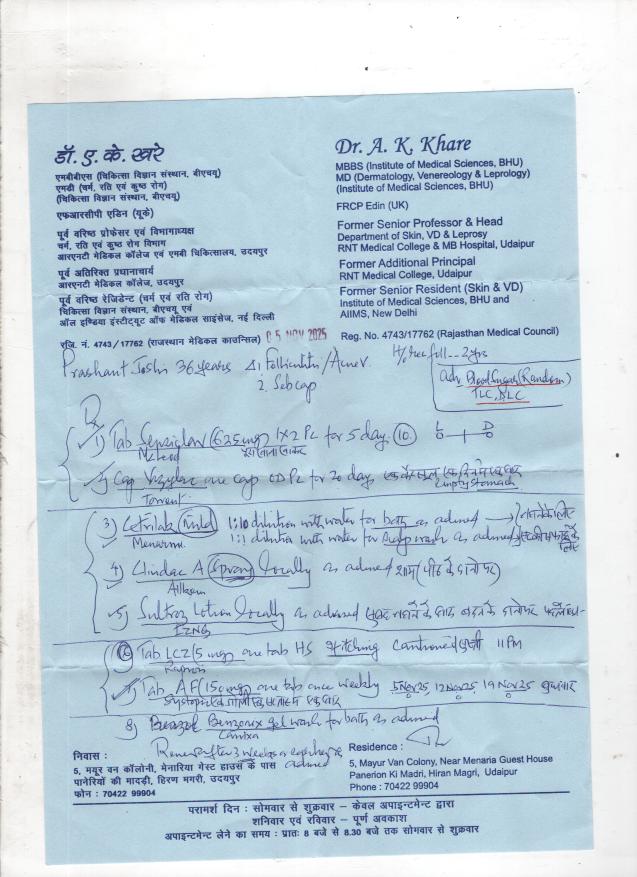 डॉ. ए. के. खरे
एमबीबीएस (चिकित्सा विज्ञान संस्थान, बीएचयू)
एमडी (चर्म, रति एवं कुष्ठ रोग)
(चिकित्सा विज्ञान संस्थान, बीएचयू)
एफआरसीपी एडिन (यूके)
पूर्व वरिष्ठ प्रोफेसर एवं विभागाध्यक्ष
चर्म, रति एवं कुष्ठ रोग विभाग
आरएनटी मेडिकल कॉलेज एवं एमबी चिकित्सालय, उदयपुर
पूर्व अतिरिक्त प्रधानाचार्य
आरएनटी मेडिकल कॉलेज, उदयपुर
पूर्व वरिष्ठ रेजिडेन्ट (चर्म एवं रति रोग)
चिकित्सा विज्ञान संस्थान, बीएचयू एवं
ऑल इण्डिया इंस्टीट्यूट ऑफ मेडिकल साइंसेज, नई दिल्ली
रजि. नं. 4743/17762 (राजस्थान मेडिकल काउन्सिल)
Dr. A. K. Khare
MBBS (Institute of Medical Sciences, BHU)
MD (Dermatology, Venereology & Leprology)
(Institute of Medical Sciences, BHU)
FRCP Edin (UK)
Former Senior Professor & Head
Department of Skin, VD & Leprosy
RNT Medical College & MB Hospital, Udaipur
Former Additional Principal
RNT Medical College, Udaipur
Former Senior Resident (Skin & VD)
Institute of Medical Sciences, BHU and
AIIMS, New Delhi
Reg. No. 4743/17762 (Rajasthan Medical Council)
05 NOV 2025
Prashant Joshi 36 years 1. Folliculitis/Acne V.
2. Seb cap
2 yrs
Adv Blood Sugar (Random)
TLC, DLC
Rx
1) Tab (625 mg) 1x2 Pc for 5 day (10)
2) Cap one cap OD Pc for 20 day
Empty stomach
Torrent
3) Cetrilak 1:10 dilution with water for bath as advised
1:1 dilution with water for wash as advised
4) Clindac A (Spray) locally as advised शाम
Alkem
5) Lotion locally as advised सुबह नहाने के बाद
6) Tab LCZ (5 mg) one tab HS itching 11 PM
7) Tab AF (150 mg) one tab once weekly 5 Nov 25, 12 Nov 25, 19 Nov 25 बुधवार
8) Benzonix gel wash for bath as advised
Renew after 3 weeks as advised
निवास :
5, मयूर वन कॉलोनी, मेनारिया गेस्ट हाउस के पास
पानेरियों की मादड़ी, हिरण मगरी, उदयपुर
फोन : 70422 99904
Residence :
5, Mayur Van Colony, Near Menaria Guest House
Panerion Ki Madri, Hiran Magri, Udaipur
Phone : 70422 99904
परामर्श दिन : सोमवार से शुक्रवार – केवल अपाइन्टमेन्ट द्वारा
शनिवार एवं रविवार – पूर्ण अवकाश
अपाइन्टमेन्ट लेने का समय : प्रातः 8 बजे से 8.30 बजे तक सोमवार से शुक्रवार